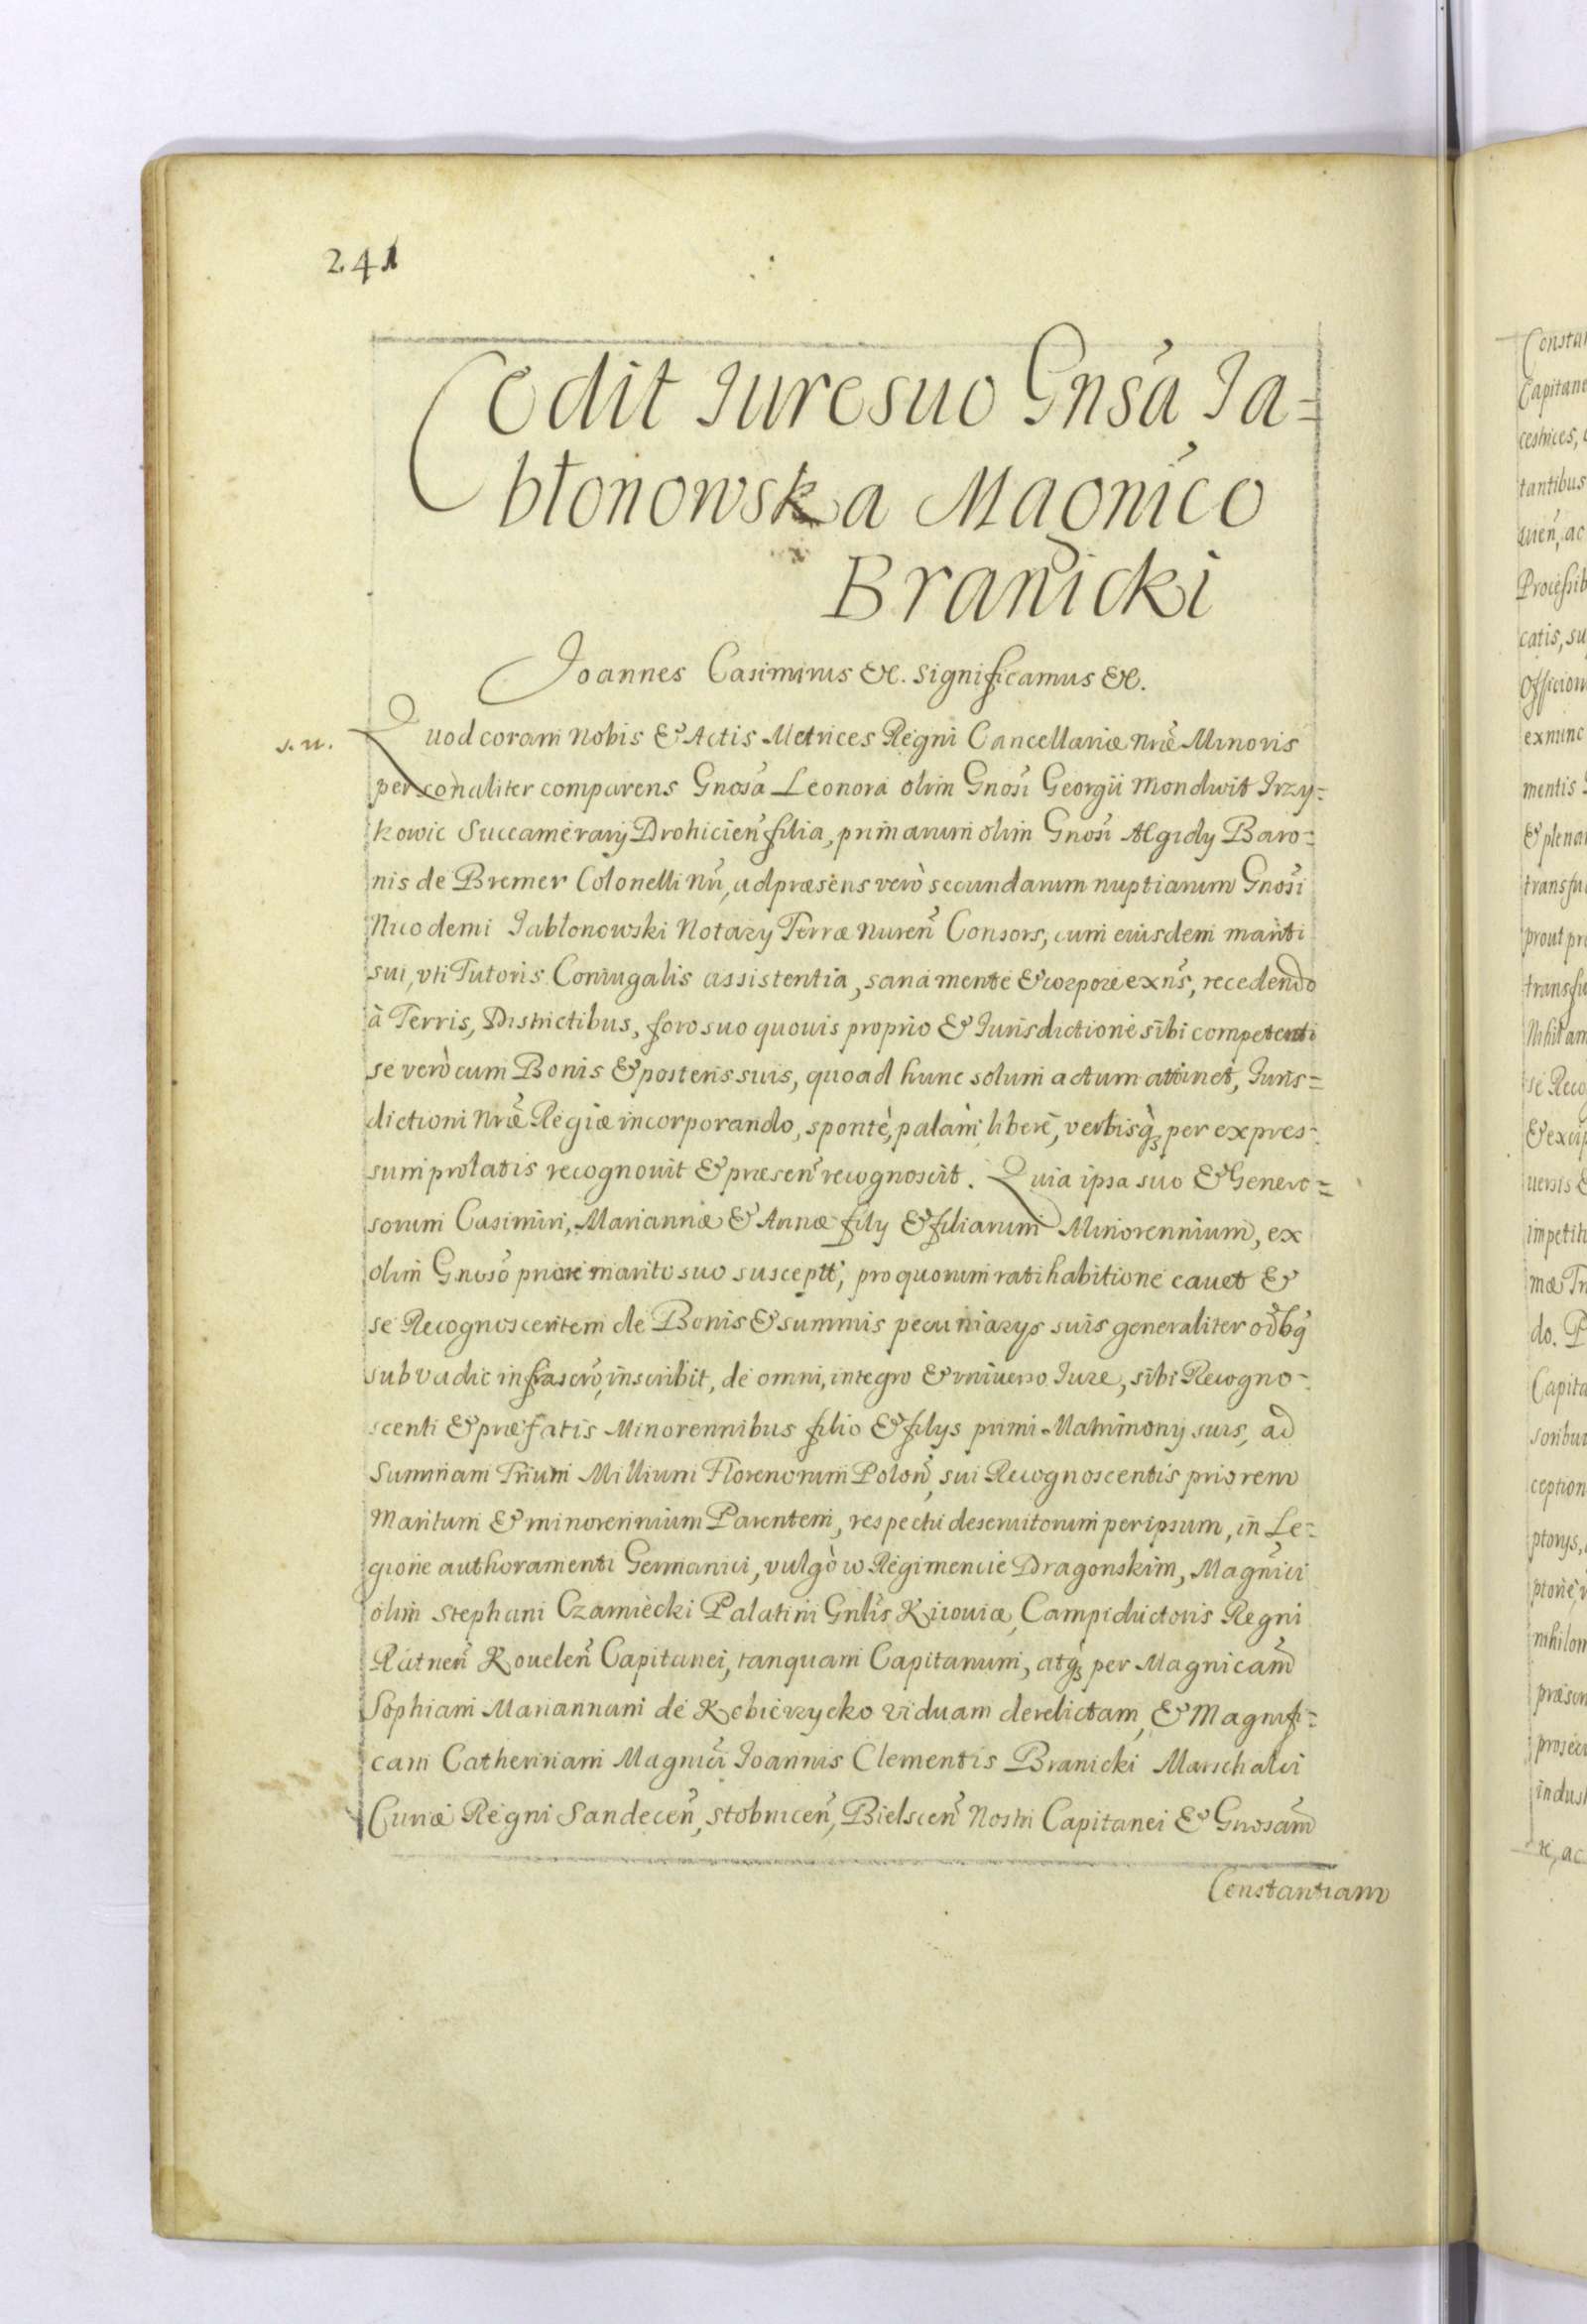 241
Cedit Iure suo Gnsa Ja=
błonowska Magnico
Branicki
Joannes Casimirus &c. significamus &c.
s. n.
Quod coram nobis & Actis Metrices Regni Cancellariæ nræ Minoris
personaliter comparens Gnosa Leonora olim Gnosi Georgii Mondwit Irzy=
kowic Succamerarij Drohicien filia, primarum olim Gnosi Ægidy Baro=
nis de Bremer Colonelli nri, ad præsens verò secundarum nuptiarum Gnosi
Nicodemi Jabłonowski Notary Terræ Nuren Consors, cum eiusdem mariti
sui, vti Tutoris Coniugalis assistentia, sana mente & corpore exns, recedendo
à Terris, Districtibus, foro suo quouis proprio & Iurisdictione sibi competenti
se verò cum Bonis & posteris suis, quoad hunc solum actum attinet, Iuris=
dictioni nræ Regiæ incorporando, spontè, palàm, liberè, verbisq per expres=
sum prolatis recognouit & præsen recognoscit. Quia ipsa suo & Genero=
sorum Casimiri, Mariannæ & Annæ fily & filiarum Minorennium, ex
olim Gnoso priore marito suo suscept, pro quorum ratihabitione cauet &
se Recognoscentem de Bonis & summis pecuniarys suis generaliter oibq
sub vadio infrascro, inscribit, de omni, integro & vniuerso Iure, sibi Recogno=
scenti & præfatis Minorennibus filio & filys primi Matrimony suis, ad
Summam Trium Millium Florenorum Polon, sui Recognoscentis priorem
Maritum & minorennium Parentem, respectu deseruitorum per ipsum, in Le=
gione authoramenti Germanici, vulgò w Regimencie Dragonskim, Magnici
olim Stephani Czarniecki Palatini Gnlis Kiiouiæ, Campiductoris Regni
Ratnen Kouelen Capitanei, tanquam Capitanum, atq per Magnicam
Sophiam Mariannam de Kobierzycko viduam derelictam, & Magnifi=
cam Catherinam Magnici Joannis Clementis Branicki Marschalci
Curiæ Regni Sandecen, Stobnicen, Bielscen Nostri Capitanei & Gnosam
Constantiam